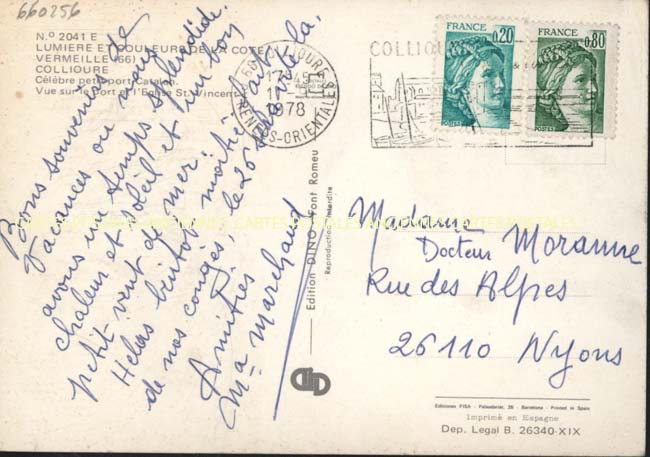 660256
N.º 2041 E
LUMIERE ET COULEUR DE LA COTE
VERMEILLE (66)
COLLIOURE
Célèbre petit port Catalan
Vue sur le Port et l'Eglise St. Vincent
66 COLLIOURE
17 H 45
1978
PYRENEES-ORIENTALES
COLLIOU
FRANCE
0,20
POSTES
FRANCE
0,80
POSTES
Bons souvenirs de
vacances où nous
avons un temps splendide.
chaleur et soleil et un bon
petit vent de mer.
Helas bientôt moitié fait
de nos congés, le 26 on sera là,
Amitiés
Ma Marchand
Edition DINO - Font Romeu
Reproduction interdite
Madame
Docteur Moranne
Rue des Alpes
26110 Nyons
Ediciones FISA - Palaudarias, 26 - Barcelona - Printed in Spain
Imprimé en Espagne
Dep. Legal B. 26340-XIX
CARTES POSTALES